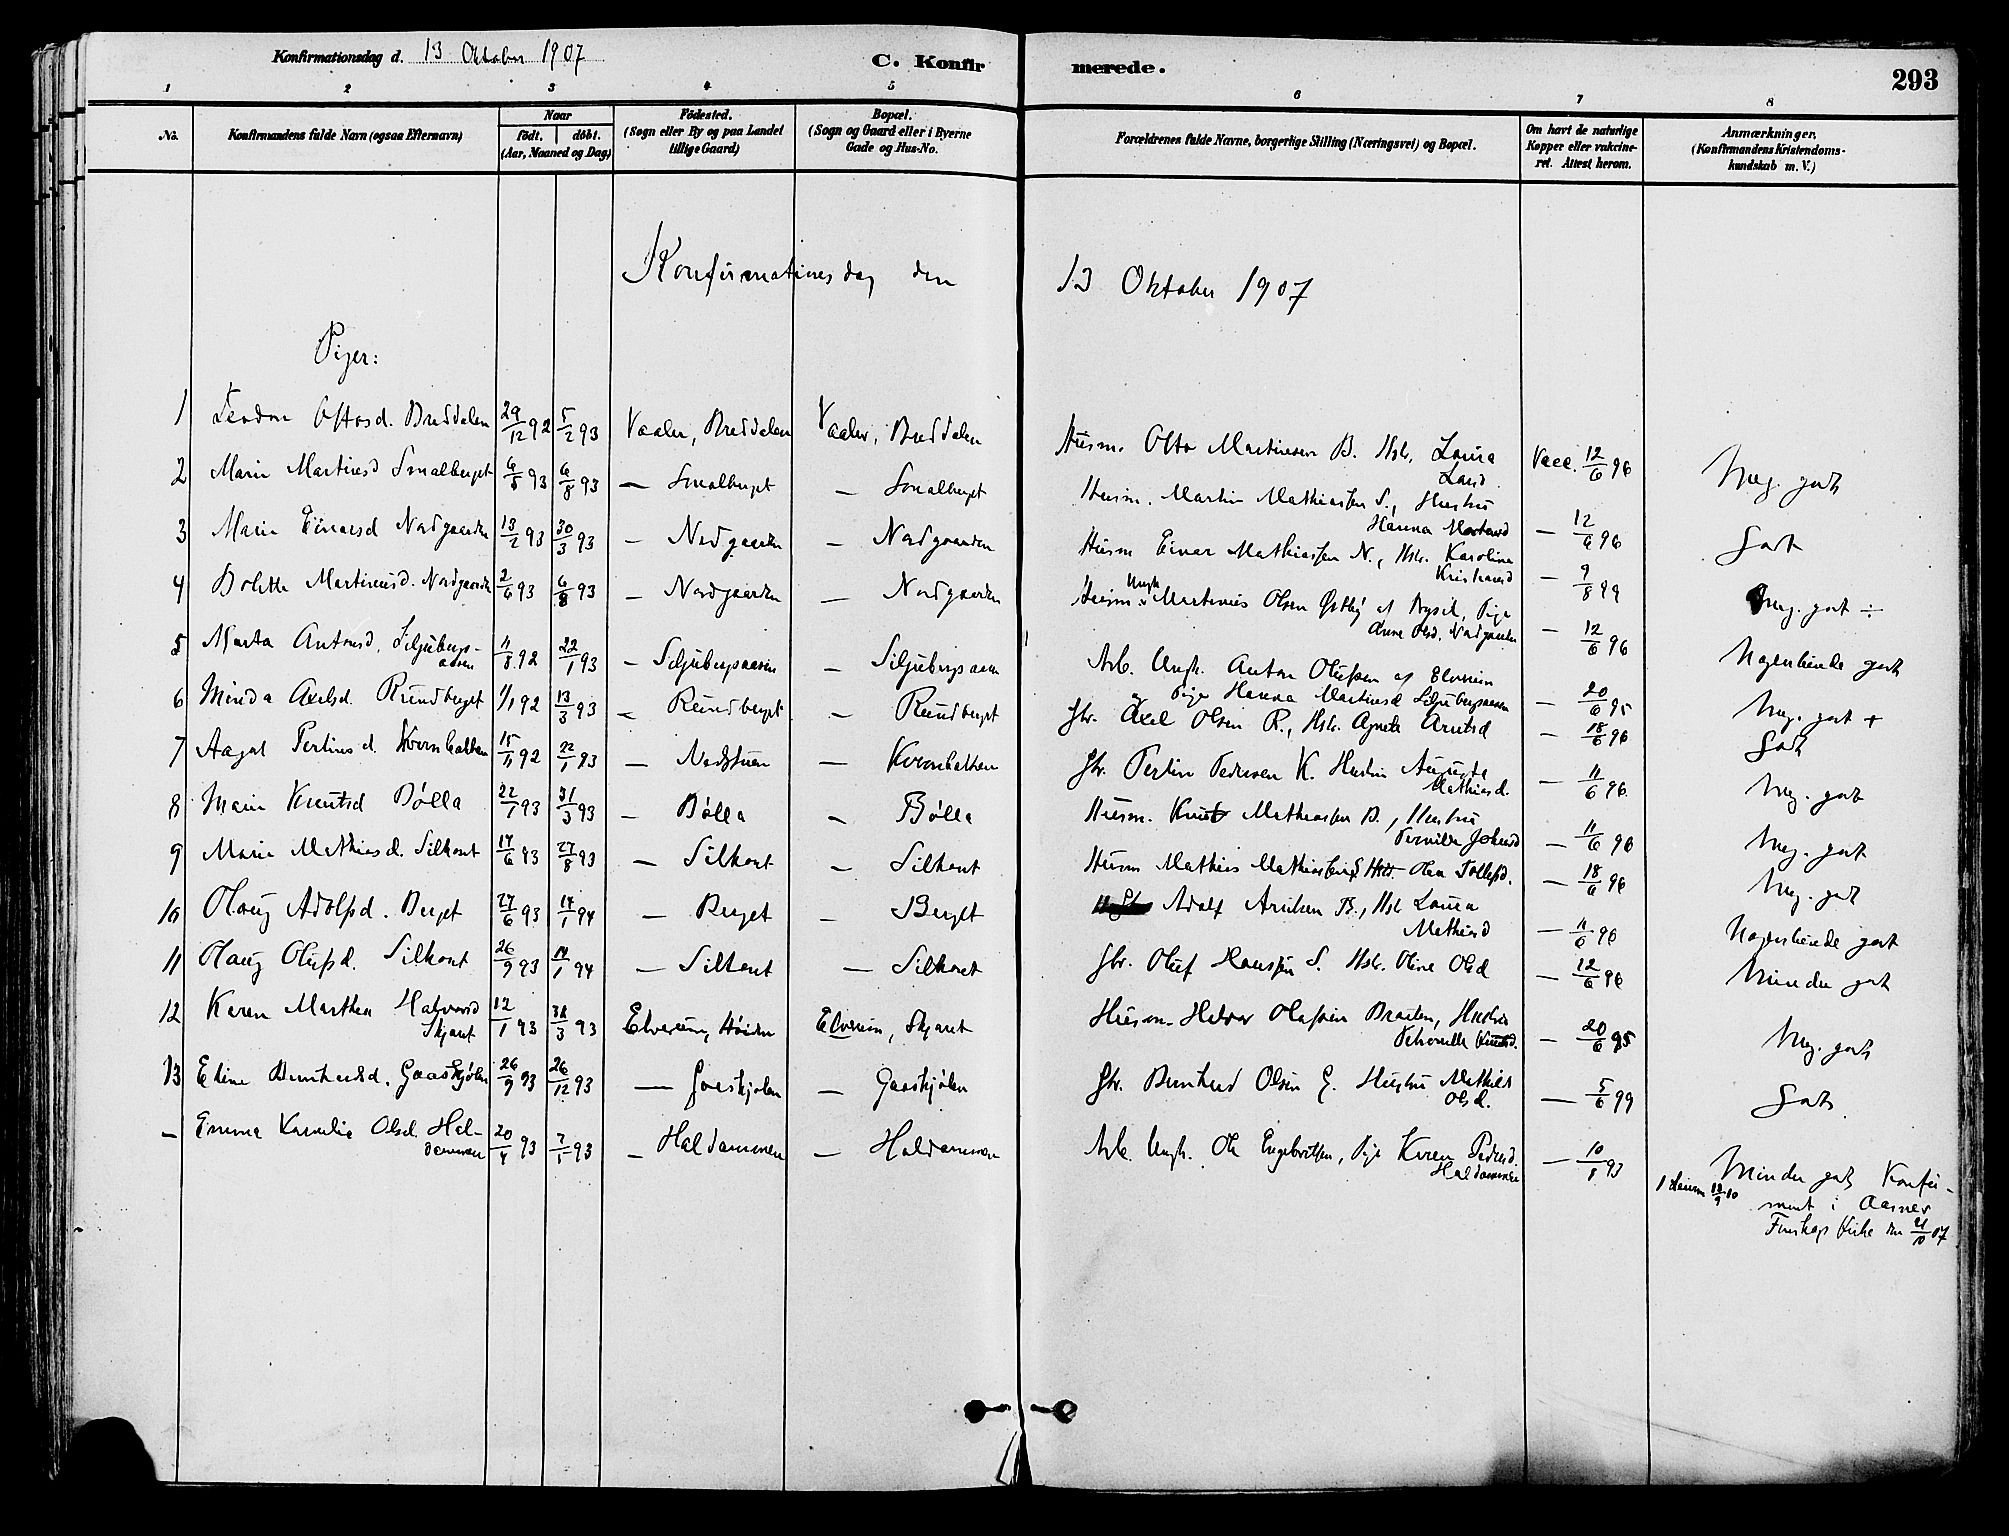 Konfirmationsdag d. 13 Oktober 1907
C. Konfirmerede.
293
1 2 3 4 5 6 7 8
No.
Konfirmandens fulde Navn (ogsaa Efternavn)
Naar
födt. | döbt.
(Aar, Maaned og Dag)
Födested.
(Sogn eller By og paa Landet
tillige Gaard)
Bopæl.
(Sogn og Gaard eller i Byerne
Gade og Hus-No.
Forældrenes fulde Navne, borgerlige Stilling (Næringsvei) og Bopæl.
Om havt de naturlige
Kopper eller vakcine-
ret. Attest herom.
Anmærkninger.
(Konfirmandens Kristendoms-
kundskab m. V.)
Konfirmationsdag den 13 Oktober 1907
Piger:
1 Ottosd. Breddalen 29/12 92 5/2 93 Vaaler, Breddalen Vaaler, Breddalen Husm. Otto Martinsen B. Hst. Lovise Larsd. Vacc. 12/6 96 Meg. godt
2 Marie Martinsd Smalberget 6/5 93 6/8 93 — Smalberget — Smalberget Husm. Martin Mathiassen S., Hustru Hanna — 12/6 96 Godt
3 Marie Einarsd Nordgaarden 13/2 93 30/3 93 — Nordgaarden — Nordgaarden Husm Einar Mathiassen N., Hst. Karoline Kristiansd — 9/8 99 Meg. godt ÷
4 Bolette Martinusd. Nordgaarden 2/6 93 6/8 93 — Nordgaarden — Nordgaarden Husm. Ungk Martinus Olsen Østby af Trysil, Pige Anne Olsd. Nordgaarden — 12/6 96 Nogenlunde godt
5 Marta Antonsd. Siljubergs-
aasen 11/8 92 22/1 93 — Siljubergsaasen — Siljubergsaasen Arb. Ungk. Anton Olufsen af Elverum
og Pige Hanna Martinsd Siljubergsaasen — 20/6 95 Meg. godt +
6 Minda Axelsd. Rundberget 1/1 92 13/3 93 — Rundberget — Rundberget Gbr. Axel Olsen R., Hst. Agnete Arntsd — 18/6 96 Godt
7 Aagot Pertinsd. Kvernbakken 15/11 92 22/1 93 — Nordstuen — Kvernbakken Gbr. Pertin Pedersen K. Hustru Auguste Mathiasd. — 11/6 96 Meg. godt
8 Marie Knutsd Bölla 22/1 93 31/3 93 — Bölla — Bölla Husm. Knut Mathiassen B., Hustru Pernille Johansd — 11/6 96 Meg. godt
9 Marie Mathiasd. Silkoset 17/6 93 27/8 93 — Silkoset — Silkoset Husm Mathias Mathiassen S Hst. Olea Tollefsd. — 18/6 96 Meg. godt
10 Olaug Adolfsd. Berget 27/6 93 14/1 94 — Berget — Berget Adolf Arntsen B., Hst Lovisa Mathiasd — 11/6 96 Nogenlunde godt
11 Olaug Olufsd. Silkoset 26/9 93 14/1 94 — Silkoset — Silkoset Gbr. Oluf Hanssen S. Hst. Oline Olsd — 12/6 96 Mindre godt
12 Karen Marthea Halvorsd
Skjæret 12/1 93 31/3 93 Elverum, Elverum, Skjæret Husm. Halvor Olafsen Braaten, Hustru Petronille Knutsd. — 20/6 95 Meg. godt
13 Eline Bernhardsd. Gaaskjølen 26/9 93 26/12 93 — Gaaskjølen — Gaaskjølen Gbr. Bernhard Olsen G. Hustru Mathilde Olsd. — 5/6 99 Godt
— Emma Kornelia Olsd. Hal-
dammen 20/4 93 7/5 93 — Haldammen — Haldammen Arb. Ungk. Ole Engebretsen, Pige Karen Pedersd. Haldammen — 10/8 93 Mindre godt Konfir-
meret i Aasnes
Finskogs Kirke den 21/10 07